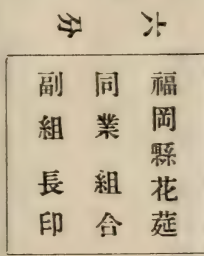 六分
福岡縣花莚
同業組合
副組長印